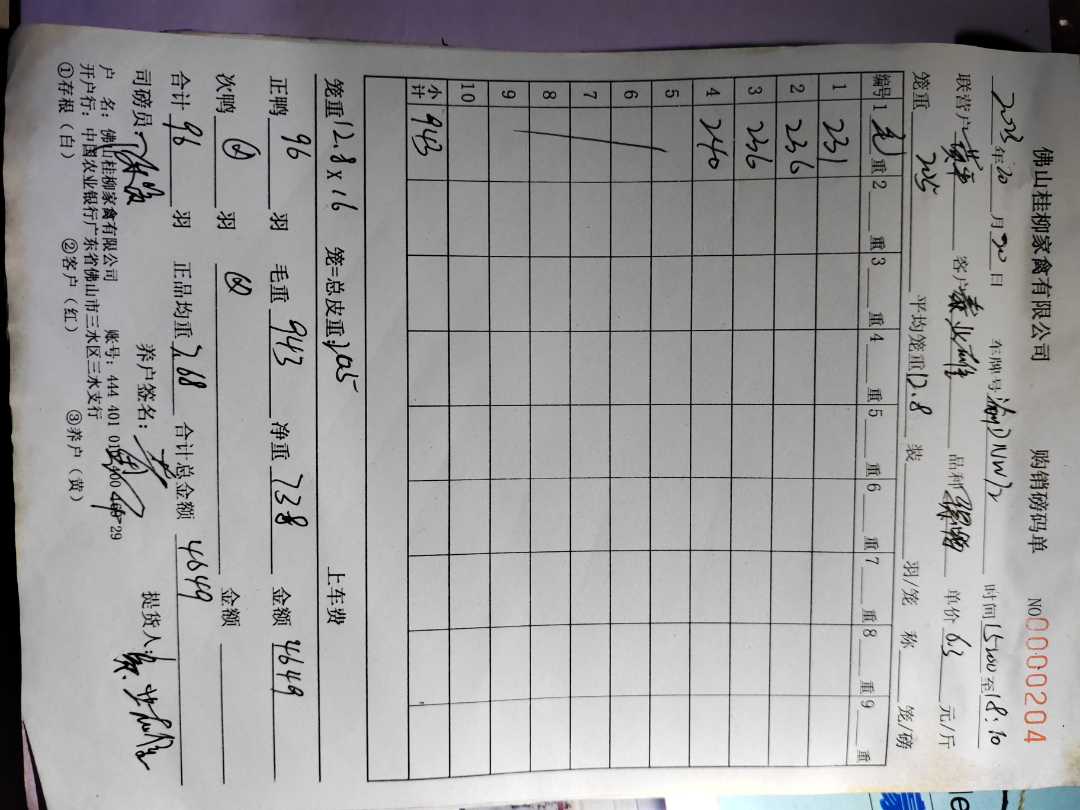 佛山桂柳家禽有限公司 购销磅码单 NO0000204
2023年 月20日 车牌号 渝DNW12 时间15:00至18:10
联营户 客户 品种 单价6.3元/斤
笼重205 平均笼重12.8 装 羽/笼 称 笼/磅
编号 1 毛重 2 重 3 重 4 重 5 重 6 重 7 重 8 重 9 重
1 231
2 236
3 236
4 240
5
6
7
8
9
10
小计 943
笼重12.8×16 笼=总皮重:205 上车费
正鸭96羽 毛重943 净重738 金额4649
次鸭 羽 金额
合计96羽 正品均重7.68 合计总金额4649
司磅员: 养户签名: 提货人:
户 名:佛山桂柳家禽有限公司 账号:444 401 010 400 29
开户行:中国农业银行广东省佛山市三水区三水支行
①存根(白) ②客户(红) ③养户(黄)